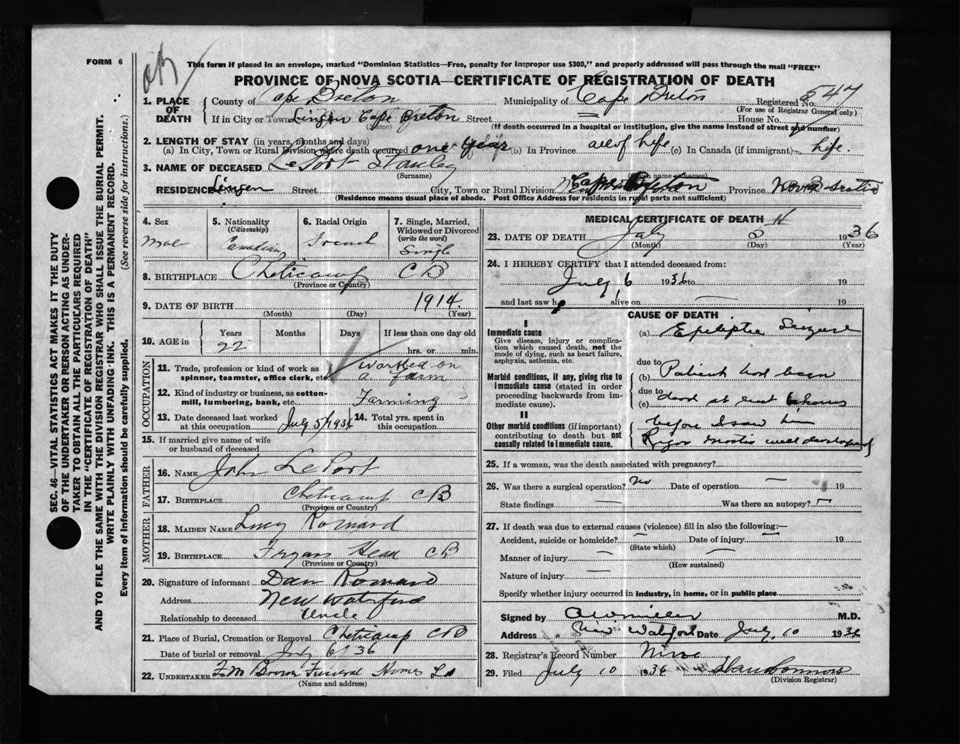 FORM 6
This form if placed in an envelope, marked "Dominion Statistics—Free, penalty for improper use $300," and properly addressed will pass through the mail "FREE"
PROVINCE OF NOVA SCOTIA—CERTIFICATE OF REGISTRATION OF DEATH
1. PLACE OF DEATH County of Cape Breton Municipality of Cape Breton Registered No. 547
(For use of Registrar General only)
If in City or Town Lingan Cape Breton Street House No.
(If death occurred in a hospital or institution, give the name instead of street and number)
2. LENGTH OF STAY (in years, months and days)
(a) In City, Town or Rural Division where death occurred one year (b) In Province all of life (c) In Canada (if immigrant) life.
3. NAME OF DECEASED LeFort Stanley
(Surname)
RESIDENCE Lingan Street City, Town or Rural Division Cape Breton Province Nova Scotia
(Residence means usual place of abode. Post Office Address for residents in rural parts not sufficient)
4. Sex
Male
5. Nationality
(Citizenship)
Canadian
6. Racial Origin
French
7. Single, Married, Widowed or Divorced
(write the word)
Single
8. BIRTHPLACE Cheticamp CB
(Province or Country)
9. DATE OF BIRTH 1914
(Month) (Day) (Year)
10. AGE in Years Months Days If less than one day old
22 hrs. or min.
OCCUPATION
11. Trade, profession or kind of work as spinner, teamster, office clerk, etc. worked on a farm
12. Kind of industry or business, as cotton-mill, lumbering, bank, etc. Farming
13. Date deceased last worked at this occupation July 5/1936 14. Total yrs. spent in this occupation
15. If married give name of wife or husband of deceased
FATHER
16. NAME John LeFort
17. BIRTHPLACE Cheticamp CB
(Province or Country)
MOTHER
18. MAIDEN NAME Lucy Romard
19. BIRTHPLACE Head CB
(Province or Country)
20. Signature of informant Dan Romard
Address New Waterford
Relationship to deceased Uncle
21. Place of Burial, Cremation or Removal Cheticamp CB
Date of burial or removal July 6/36
22. UNDERTAKER F.M. Brown Funeral Homes Ld
(Name and Address)
MEDICAL CERTIFICATE OF DEATH
23. DATE OF DEATH July 1936
(Month) (Day) (Year)
24. I HEREBY CERTIFY that I attended deceased from:
July 6 1936 to 19
and last saw h alive on — 19
CAUSE OF DEATH
I
Immediate cause
Give disease, injury or complication which caused death, not the mode of dying, such as heart failure, asphyxia, asthenia, etc.
(a) Epileptic Seizure
due to
Morbid conditions, if any, giving rise to immediate cause (stated in order proceeding backwards from immediate cause).
(b) Patient had been
due to
(c) dead at least 6 hours
II
Other morbid conditions (if important) contributing to death but not causally related to immediate cause.
before I saw him
Rigor mortis well developed
25. If a woman, was the death associated with pregnancy?
26. Was there a surgical operation? no Date of operation — 19
State findings — Was there an autopsy? —
27. If death was due to external causes (violence) fill in also the following:—
Accident, suicide or homicide? — Date of injury — 19
(State which)
Manner of injury —
(How sustained)
Nature of injury —
Specify whether injury occurred in industry, in home, or in public place
Signed by M.D.
Address New Waterford Date July 10 1936
28. Registrar's Record Number Nine
29. Filed July 10 1936
(Division Registrar)
SEC. 46—VITAL STATISTICS ACT MAKES IT THE DUTY OF THE UNDERTAKER OR PERSON ACTING AS UNDERTAKER TO OBTAIN ALL THE PARTICULARS REQUIRED IN THE "CERTIFICATE OF REGISTRATION OF DEATH" AND TO FILE THE SAME WITH THE DIVISION REGISTRAR WHO SHALL ISSUE THE BURIAL PERMIT.
WRITE PLAINLY WITH UNFADING INK. THIS IS A PERMANENT RECORD.
Every item of information should be carefully supplied. (See reverse side for instructions.)